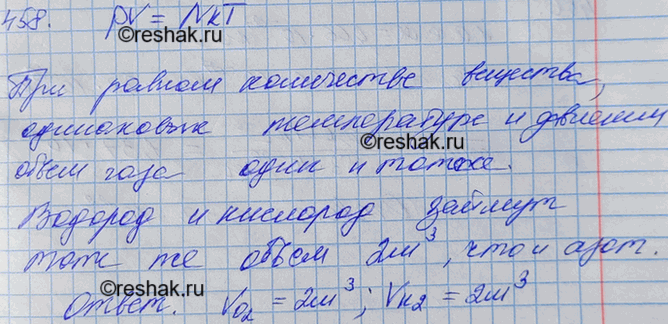 458. pV = NkT
©reshak.ru
При равном количестве вещества,
одинаковых температуре и давлении
объем газа один и тотже.
©reshak.ru
Водород и кислород займут
тот же объем 2м³, что и азот.
Ответ. V₀₂ = 2м³; Vн₂ = 2м³
©reshak.ru